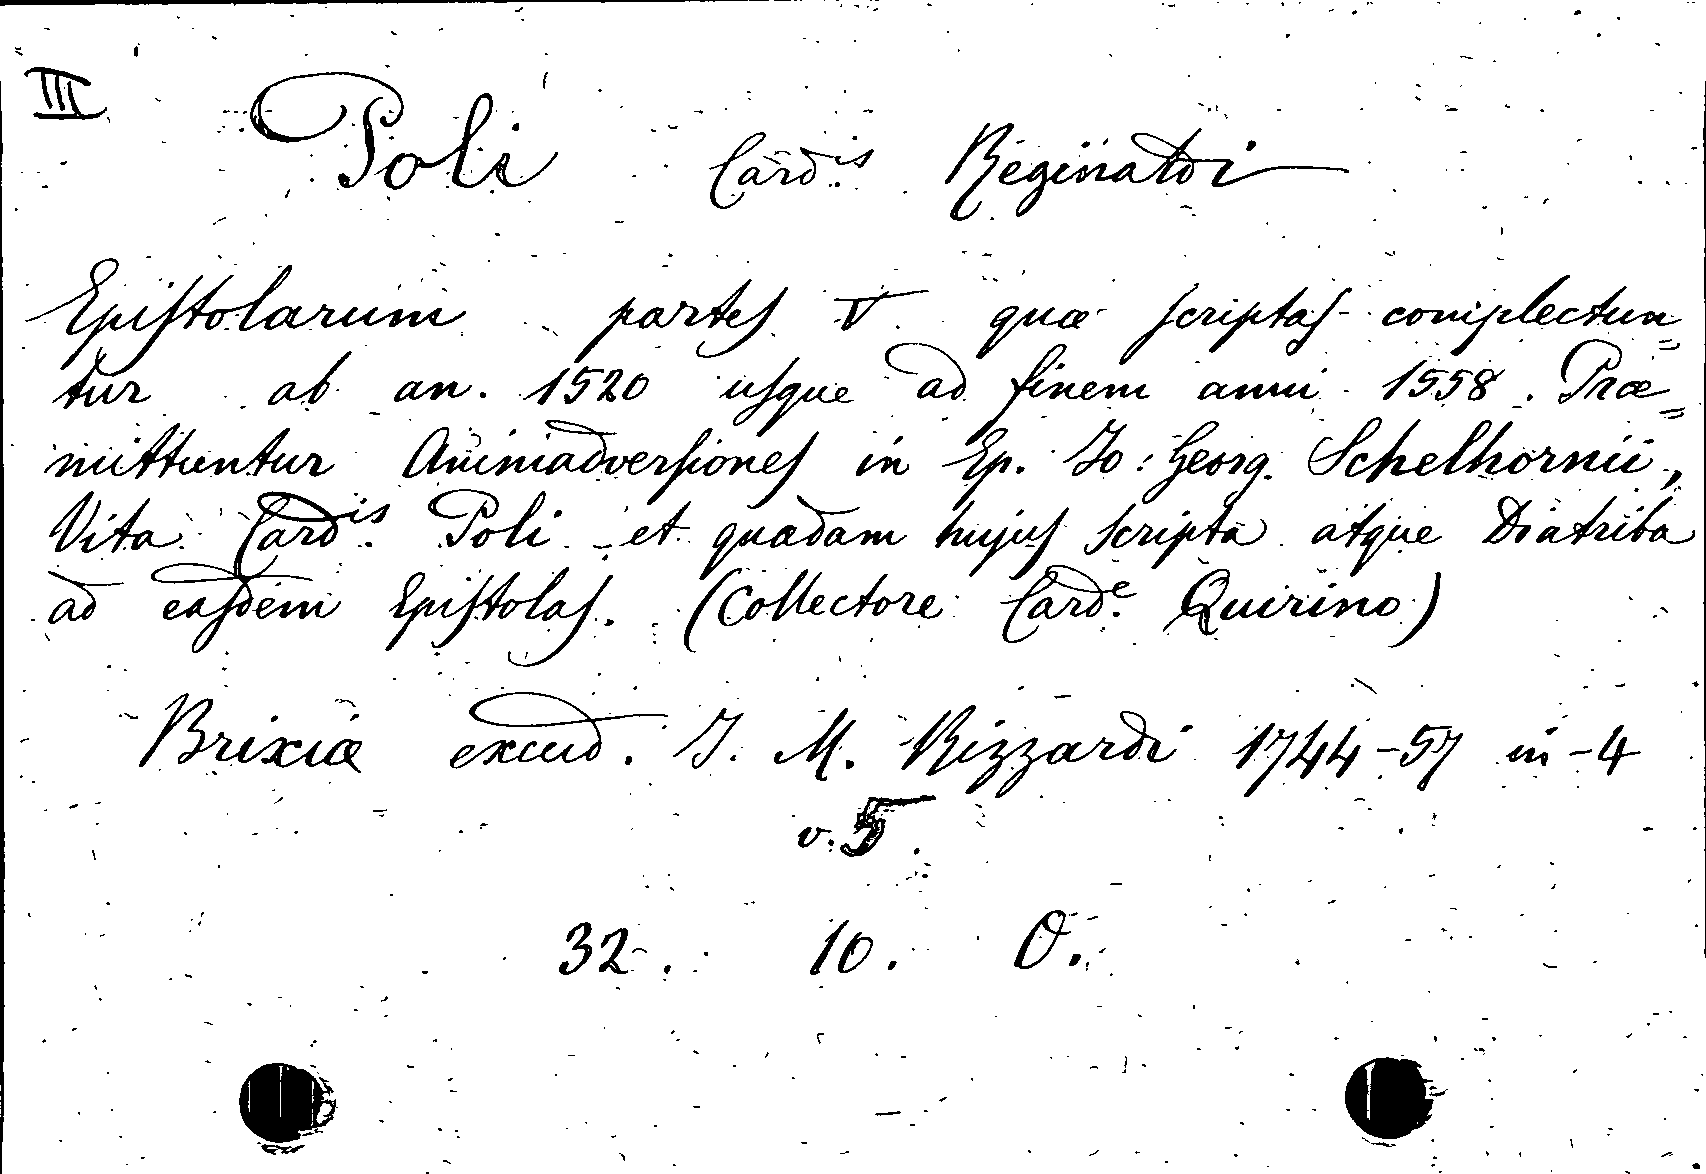 III
Poli Card.is Reginaldi
Epistolarum partes V quæ scriptas complectun=
tur ab an. 1520 usque ad finem anni 1558. Præ=
mittuntur Animadversiones in Ep. Jo: Georg. Schelhornii,
Vita Card.is Poli et quædam hujus scripta atque Diatriba
ad easdem Epistolas. (Collectore Card.e Quirino)
Brixiæ excud. J. M. Rizzardi 1744-57 in-4
v. 5.
32. 10. O.